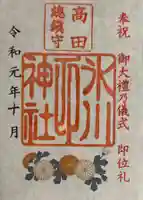 奉祝 御大禮乃儀式 即位礼
高田
總鎮守
氷川
神社
令和元年十月